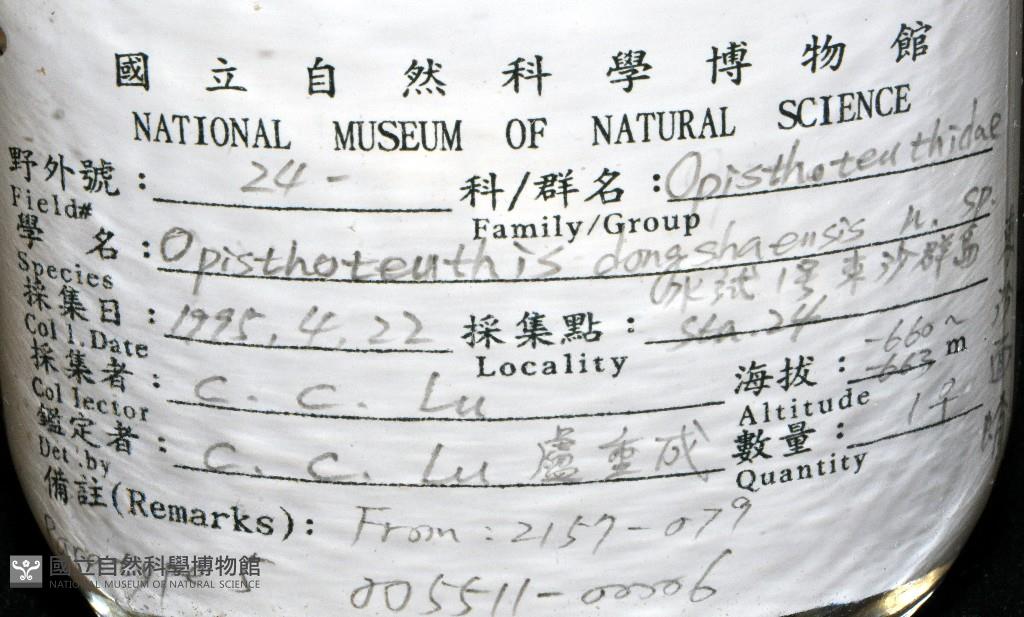 國立自然科學博物館
NATIONAL MUSEUM OF NATURAL SCIENCE
野外號: 24- 科/群名: Opisthoteuthidae
Field# Family/Group
學名: Opisthoteuthis dongshaensis n. sp.
Species
水試1号 東沙群島
採集日: 1995.4.22 採集點: Sta 24
Coll.Date Locality
採集者: C. C. Lu 海拔: -660~-663 m
Collector Altitude
鑑定者: C. C. Lu 盧重成 數量: 1♀
Det.by Quantity
備註(Remarks): From: 2157-079
005511-00006
國立自然科學博物館
NATIONAL MUSEUM OF NATURAL SCIENCE